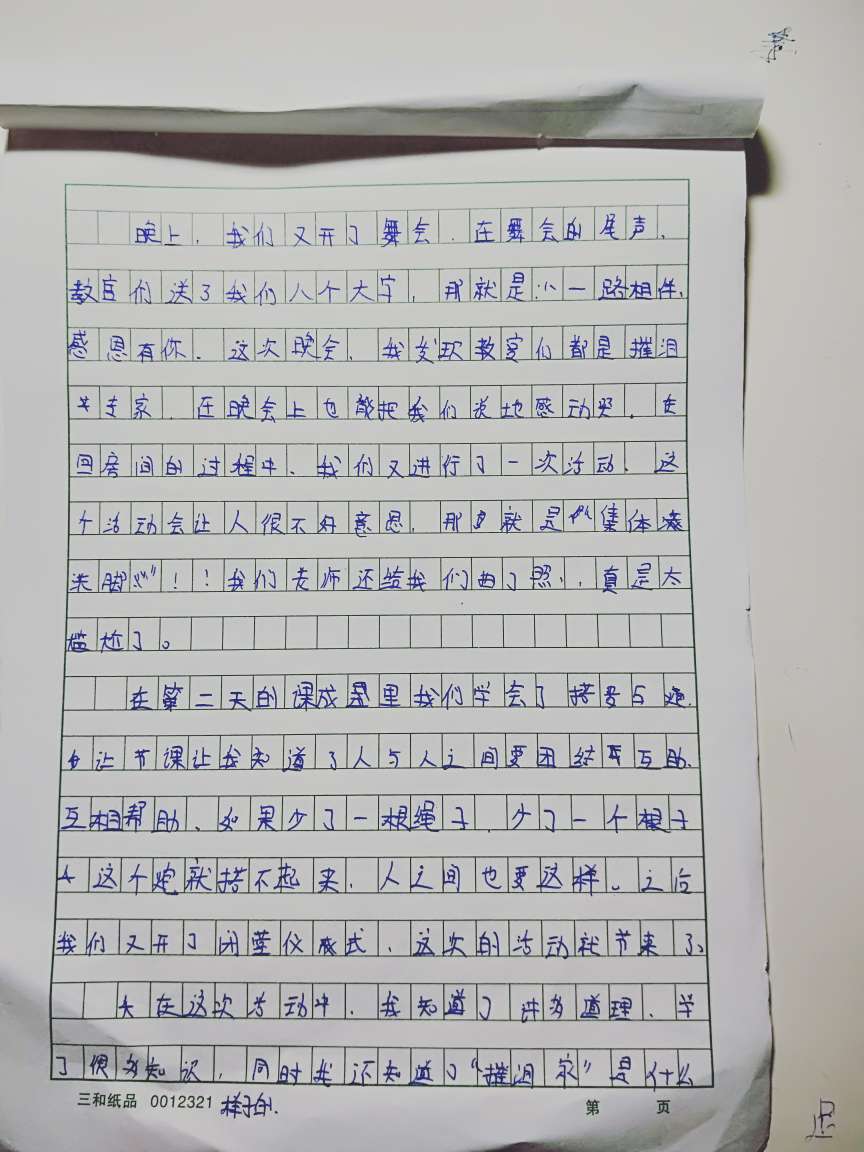 晚上，我们又开了舞会，在舞会的尾声，
教官们送了我们八个大字，那就是“一路相伴，
感恩有你。这次晚会，我发现教官们都是摧泪
专家，在晚会上也能把我们说地感动哭。在
回房间的过程中，我们又进行了一次活动，这
个活动会让人很不好意思，那就是“集体
洗脚”！！我们老师还给我们曲了照，真是太
尴尬了。
在第二天的课成里我们学会了搭炮，
让节课让我知道了人与人之间要团结互助，
互相帮助，如果少了一根绳子，少了一个棍子
这个炮就搭不起来，人之间也要这样。之后
我们又开了闭营仪式，这次的活动就节来了。
在这次活动中，我知道了许多道理，学
了很多知识，同时我还知道了“摧泪家”是什么
样子的.
三和纸品 0012321 第 页